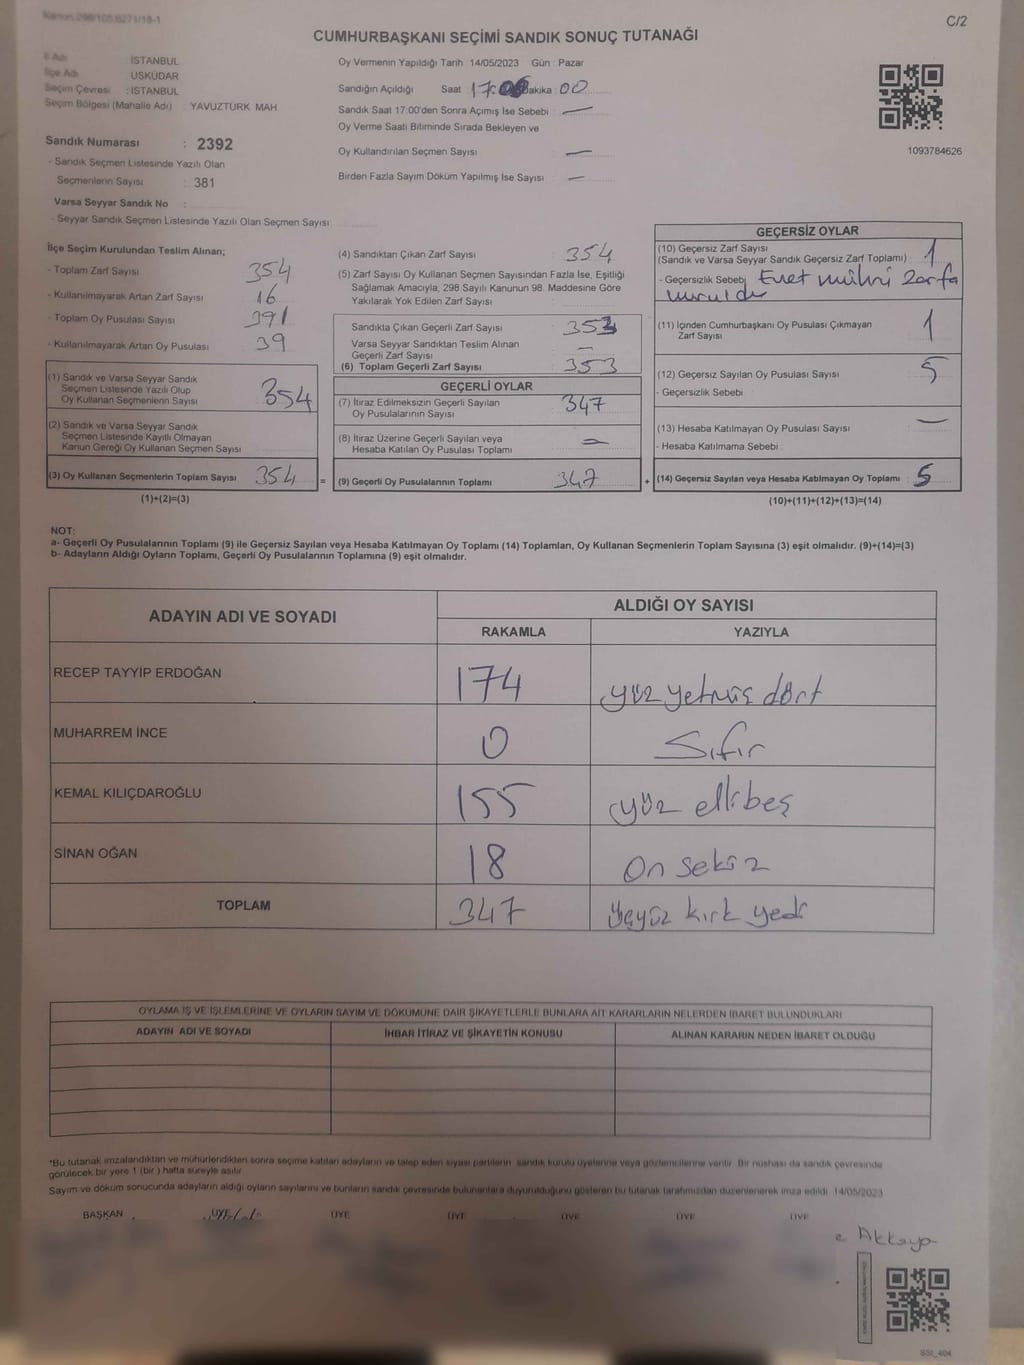 Kanun 298/105.6271/18-1
C/2
CUMHURBAŞKANI SEÇİMİ SANDIK SONUÇ TUTANAĞI
İl Adı : İSTANBUL
İlçe Adı : ÜSKÜDAR
Seçim Çevresi : İSTANBUL
Seçim Bölgesi (Mahalle Adı) : YAVUZTÜRK MAH
Sandık Numarası : 2392
- Sandık Seçmen Listesinde Yazılı Olan
Seçmenlerin Sayısı : 381
Varsa Seyyar Sandık No :
- Seyyar Sandık Seçmen Listesinde Yazılı Olan Seçmen Sayısı:
Oy Vermenin Yapıldığı Tarih : 14/05/2023 Gün : Pazar
Sandığın Açıldığı Saat : 17:00 Dakika : 00
Sandık Saat 17:00'den Sonra Açımış İse Sebebi : —
Oy Verme Saati Bitiminde Sırada Bekleyen ve
Oy Kullandırılan Seçmen Sayısı : —
Birden Fazla Sayım Döküm Yapılmış İse Sayısı : —
1093784626
İlçe Seçim Kurulundan Teslim Alınan;
- Toplam Zarf Sayısı : 354
- Kullanılmayarak Artan Zarf Sayısı : 16
- Toplam Oy Pusulası Sayısı : 391
- Kullanılmayarak Artan Oy Pusulası : 39
(1) Sandık ve Varsa Seyyar Sandık
Seçmen Listesinde Yazılı Olup
Oy Kullanan Seçmenlerin Sayısı 354
(2) Sandık ve Varsa Seyyar Sandık
Seçmen Listesinde Kayıtlı Olmayan
Kanun Gereği Oy Kullanan Seçmen Sayısı
(3) Oy Kullanan Seçmenlerin Toplam Sayısı 354 =
(1)+(2)=(3)
(4) Sandıktan Çıkan Zarf Sayısı : 354
(5) Zarf Sayısı Oy Kullanan Seçmen Sayısından Fazla İse, Eşitliği
Sağlamak Amacıyla, 298 Sayılı Kanunun 98. Maddesine Göre
Yakılarak Yok Edilen Zarf Sayısı :
Sandıkta Çıkan Geçerli Zarf Sayısı : 353
Varsa Seyyar Sandıktan Teslim Alınan
Geçerli Zarf Sayısı : —
(6) Toplam Geçerli Zarf Sayısı : 353
GEÇERLİ OYLAR
(7) İtiraz Edilmeksizin Geçerli Sayılan
Oy Pusulalarının Sayısı : 347
(8) İtiraz Üzerine Geçerli Sayılan veya
Hesaba Katılan Oy Pusulası Toplamı : —
(9) Geçerli Oy Pusulalarının Toplamı : 347 +
GEÇERSİZ OYLAR
(10) Geçersiz Zarf Sayısı
(Sandık ve Varsa Seyyar Sandık Geçersiz Zarf Toplamı) : 1
- Geçersizlik Sebebi : Evet mührü zarfa
vuruldu
(11) İçinden Cumhurbaşkanı Oy Pusulası Çıkmayan
Zarf Sayısı : 1
(12) Geçersiz Sayılan Oy Pusulası Sayısı : 5
- Geçersizlik Sebebi :
(13) Hesaba Katılmayan Oy Pusulası Sayısı : —
- Hesaba Katılmama Sebebi :
(14) Geçersiz Sayılan veya Hesaba Katılmayan Oy Toplamı : 5
(10)+(11)+(12)+(13)=(14)
NOT:
a- Geçerli Oy Pusulalarının Toplamı (9) ile Geçersiz Sayılan veya Hesaba Katılmayan Oy Toplamı (14) Toplamları, Oy Kullanan Seçmenlerin Toplam Sayısına (3) eşit olmalıdır. (9)+(14)=(3)
b- Adayların Aldığı Oyların Toplamı, Geçerli Oy Pusulalarının Toplamına (9) eşit olmalıdır.
ADAYIN ADI VE SOYADI
ALDIĞI OY SAYISI
RAKAMLA YAZIYLA
RECEP TAYYİP ERDOĞAN 174 yüz yetmiş dört
MUHARREM İNCE 0 Sıfır
KEMAL KILIÇDAROĞLU 155 yüz ellibeş
SİNAN OĞAN 18 On sekiz
TOPLAM 347 üçyüz kırk yedi
OYLAMA İŞ VE İŞLEMLERİNE VE OYLARIN SAYIM VE DÖKÜMÜNE DAİR ŞİKAYETLERLE BUNLARA AİT KARARLARIN NELERDEN İBARET BULUNDUKLARI
ADAYIN ADI VE SOYADI İHBAR İTİRAZ VE ŞİKAYETİN KONUSU ALINAN KARARIN NEDEN İBARET OLDUĞU
*Bu tutanak imzalandıktan ve mühürlendikten sonra seçime katılan adayların ve talep eden siyasi partilerin sandık kurulu üyelerine veya gözlemcilerine verilir. Bir nüshası da sandık çevresinde
görülecek bir yere 1 (bir) hafta süreyle asılır
Sayım ve döküm sonucunda adayların aldığı oyların sayılarını ve bunların sandık çevresinde bulunanlara duyurulduğunu gösteren bu tutanak tarafımızdan düzenlenerek imza edildi. 14/05/2023
BAŞKAN ÜYE ÜYE ÜYE ÜYE ÜYE ÜYE
Akkaya
SSI_404